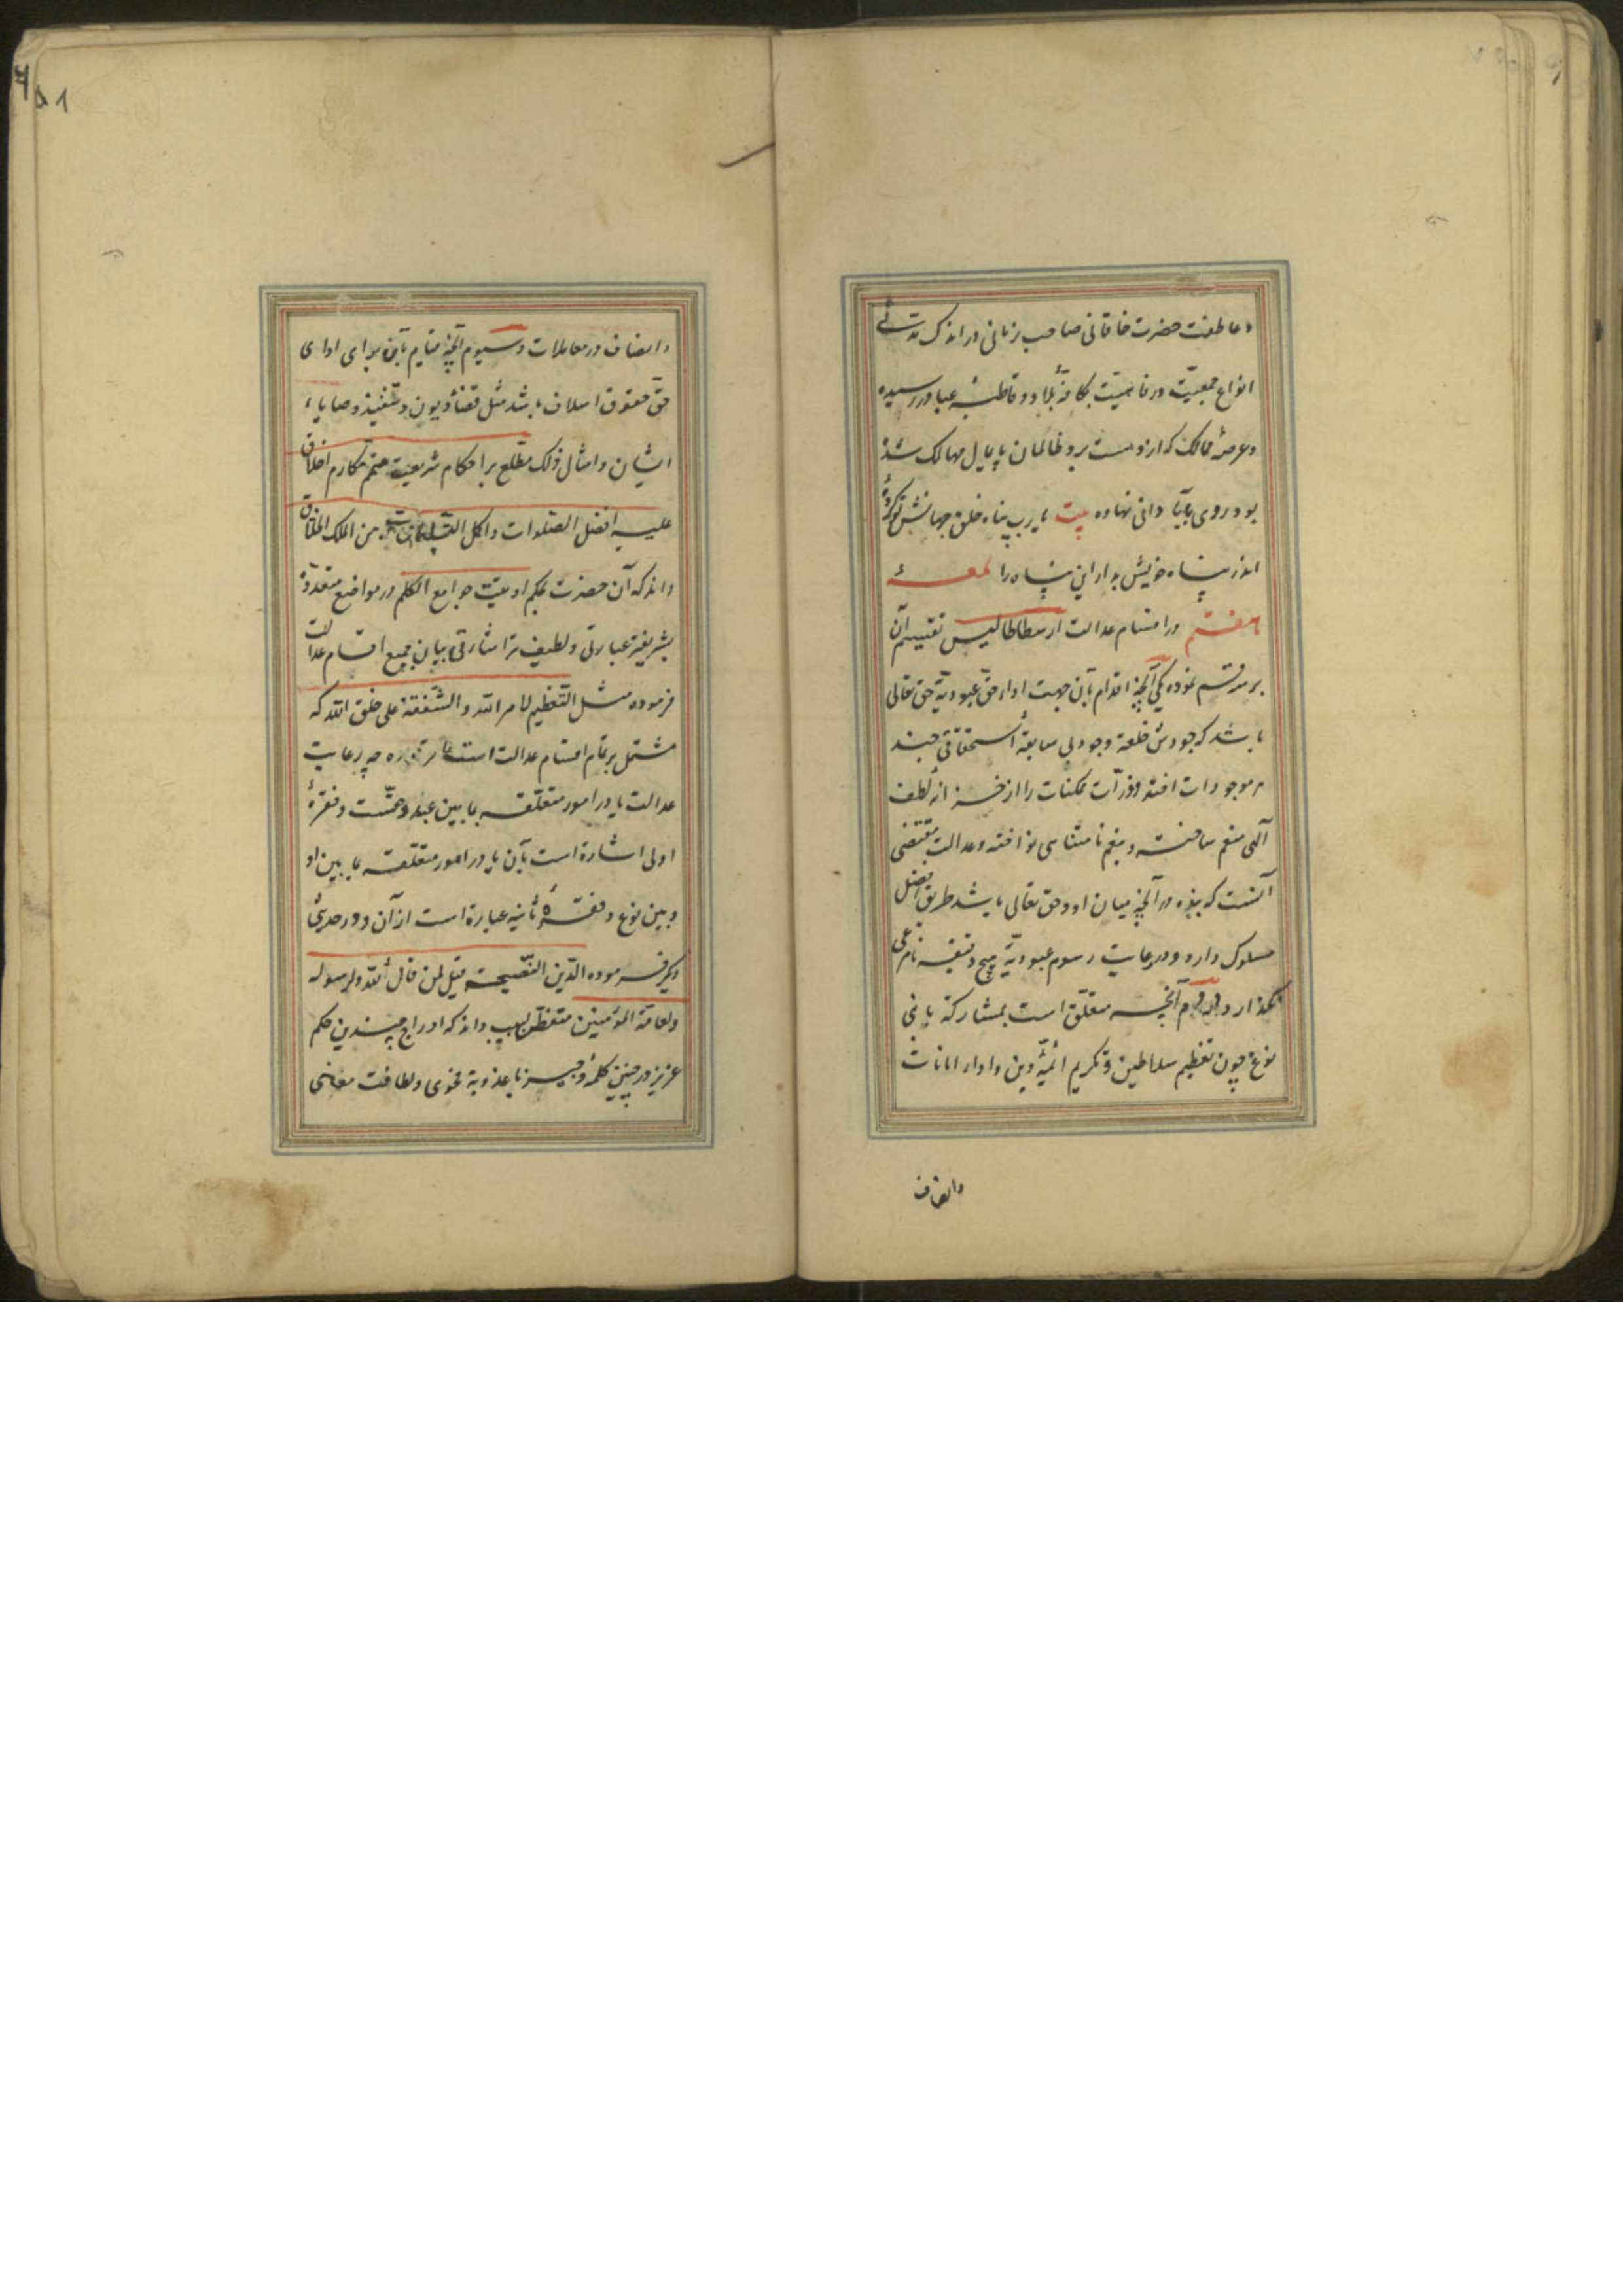 وعاطفت حضرت خاقانی صاحب زمانی در اندک مدتی
انواع جمعیّت ورفاهیّت بکافهٔ بلاد وقاطبهٔ عباد در رسیده
وعرصهٔ ممالک که از دست برد ظالمان پایمال مهالک شده
بود روی بآبادانی نهاده بیت یا رب پناه خلق جهانش تو کردهٔ
اندر پناه خویش بدار این پناه را لمعهٔ
هفتم در اقسام عدالت ارسطاطالیس تقسیم آن
بر سه قسم نموده یکی آنچه اقدام بآن جهت اداء حقّ عبودیّة حق تعالی
باشد که جودش خلعة وجود بی سابقهٔ استحقاقی چند
بر موجودات افکنده وذرّات ممکنات را از خزانهٔ لطف
الٓهی منعم ساخته وبنعم نامتناهی نواخته وعدالت مقتضی
آنست که بنده در آنچه میان او وحق تعالی باشد طریق افضل
مسلوک دارد ودر رعایت رسوم عبودیّة هیچ دقیقه نامرعی
نگذارد دوم آنچه متعلّق است بمشارکة بانی
نوع چون تعظیم سلاطین وتکریم ائمّهٔ دین واداء امانات
وانصاف
۵۸
وانصاف در معاملات وسیوم آنچه قیام بآن برای ادای
حقّ حقوق اسلاف باشد مثل قضاء دیون وتنفیذ وصایاء
ایشان وامثال ذلک مطّلع بر احکام شریعت متمّم مکارم اخلاق
علیه افضل الصلوات واکمل التسلیمات من الملک الخلاق
داند که آن حضرت بحکم اوتیت جوامع الکلم در مواضع متعدّدهٔ
بشریفتر عبارتی ولطیف تر اشارتی بیان جمیع اقسام عدالت
فرموده مثل التعظیم لامر الله والشفقة علی خلق الله که
مشتمل بر تمام اقسام عدالت است چه رعایت
عدالت یا در امور متعلّقه بما بین عبد وحقّست وفقرهٔ
اولی اشارة است بآن یا در امور متعلّقه بما بین او
وبین نوع وفقرهٔ ثانیه عبارة است از آن ودر حدیثی
دیگر فرموده الدّین النّصیحة قیل لمن قال لله ولرسوله
ولعامّة المؤمنین متفطّن لبیب داند که ادراج چندین حکم
عزیز در چنین کلمهٔ وجیز با عذوبة فحوی ولطافت معانی